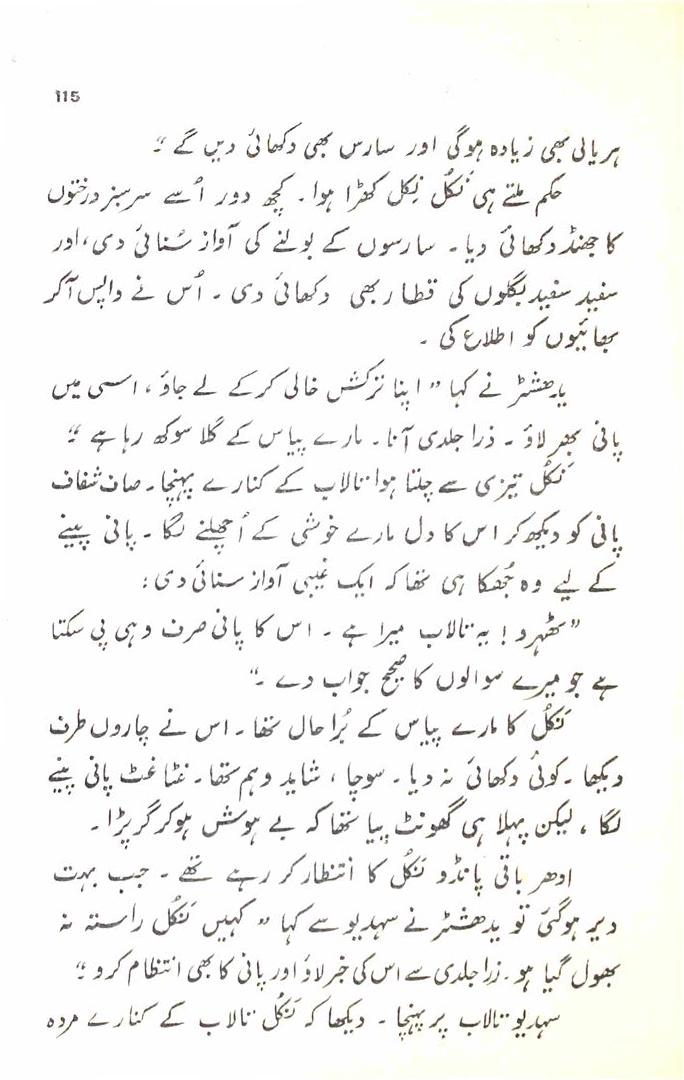 115
ہریالی بھی زیادہ ہوگی اور سارس بھی دکھائی دیں گے ”
حکم ملتے ہی نَکُل نِکل کھڑا ہوا۔ کچھ دور اُسے سرسبز درختوں
کا جھنڈ دکھائی دیا۔ سارسوں کے بولنے کی آواز سُنائی دی، اور
سفید سفید بگلوں کی قطار بھی دکھائی دی۔ اُس نے واپس آکر
بھائیوں کو اطلاع کی۔
یدھشٹر نے کہا ” اپنا ترکش خالی کرکے لے جاؤ، اسی میں
پانی بھر لاؤ۔ ذرا جلدی آنا۔ مارے پیاس کے گلا سوکھ رہا ہے ”
نَکُل تیزی سے چلتا ہوا تالاب کے کنارے پہنچا۔ صاف شفاف
پانی کو دیکھ کر اس کا دل مارے خوشی کے اُچھلنے لگا۔ پانی پینے
کے لیے وہ جُھکا ہی تھا کہ ایک غیبی آواز سنائی دی:
”ٹھہرو! یہ تالاب میرا ہے۔ اس کا پانی صرف وہی پی سکتا
ہے جو میرے سوالوں کا صحیح جواب دے۔“
نَکُل کا مارے پیاس کے بُرا حال تھا۔ اس نے چاروں طرف
دیکھا۔ کوئی دکھائی نہ دیا۔ سوچا، شاید وہم تھا۔ غٹاغٹ پانی پینے
لگا، لیکن پہلا ہی گھونٹ پیا تھا کہ بے ہوش ہوکر گر پڑا۔
ادھر باقی پانڈو نَکُل کا انتظار کر رہے تھے۔ جب بہت
دیر ہوگئی تو یدھشٹر نے سہدیو سے کہا ” کہیں نَکُل راستہ نہ
بھول گیا ہو۔ زرا جلدی سے اس کی خبر لاؤ اور پانی کا بھی انتظام کرو ”
سہدیو تالاب پر پہنچا۔ دیکھا کہ نَکُل تالاب کے کنارے مردہ